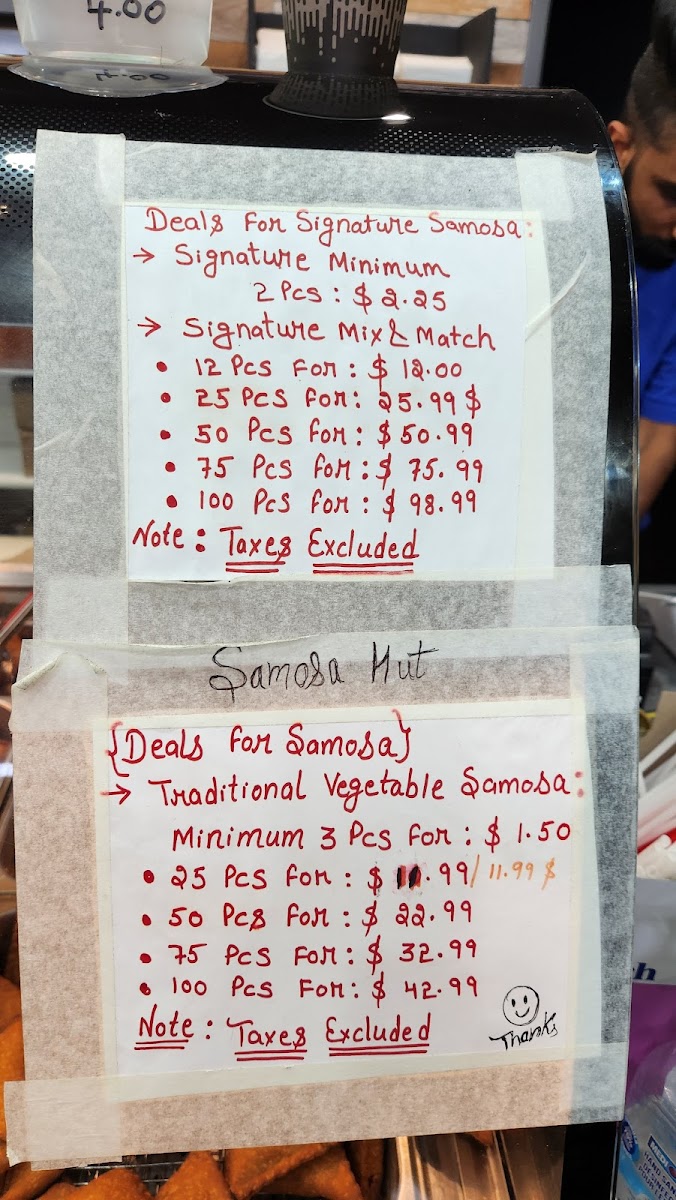 4.00
4.00
Deals For Signature Samosa:
→ Signature Minimum
2 Pcs : $ 2.25
→ Signature Mix & Match
• 12 Pcs For : $ 12.00
• 25 Pcs For : 25.99 $
• 50 Pcs for : $ 50.99
• 75 Pcs for : $ 75.99
• 100 Pcs for : $ 98.99
Note : Taxes Excluded
Samosa Hut
{Deals For Samosa}
→ Traditional Vegetable Samosa :
Minimum 3 Pcs for : $ 1.50
• 25 Pcs For : $ 11.99 / 11.99 $
• 50 Pcs For : $ 22.99
• 75 Pcs For : $ 32.99
• 100 Pcs For : $ 42.99
Note : Taxes Excluded
Thanks